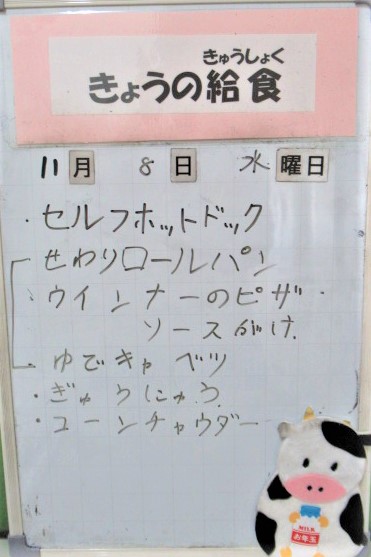 きゅうしょく
きょうの給食
11月 8日 水曜日
・セルフホットドック
せわりロールパン
・ウインナーのピザ
ソースがけ
ゆでキャベツ
・ぎゅうにゅう
・コーンチャウダー
MILK
お年玉